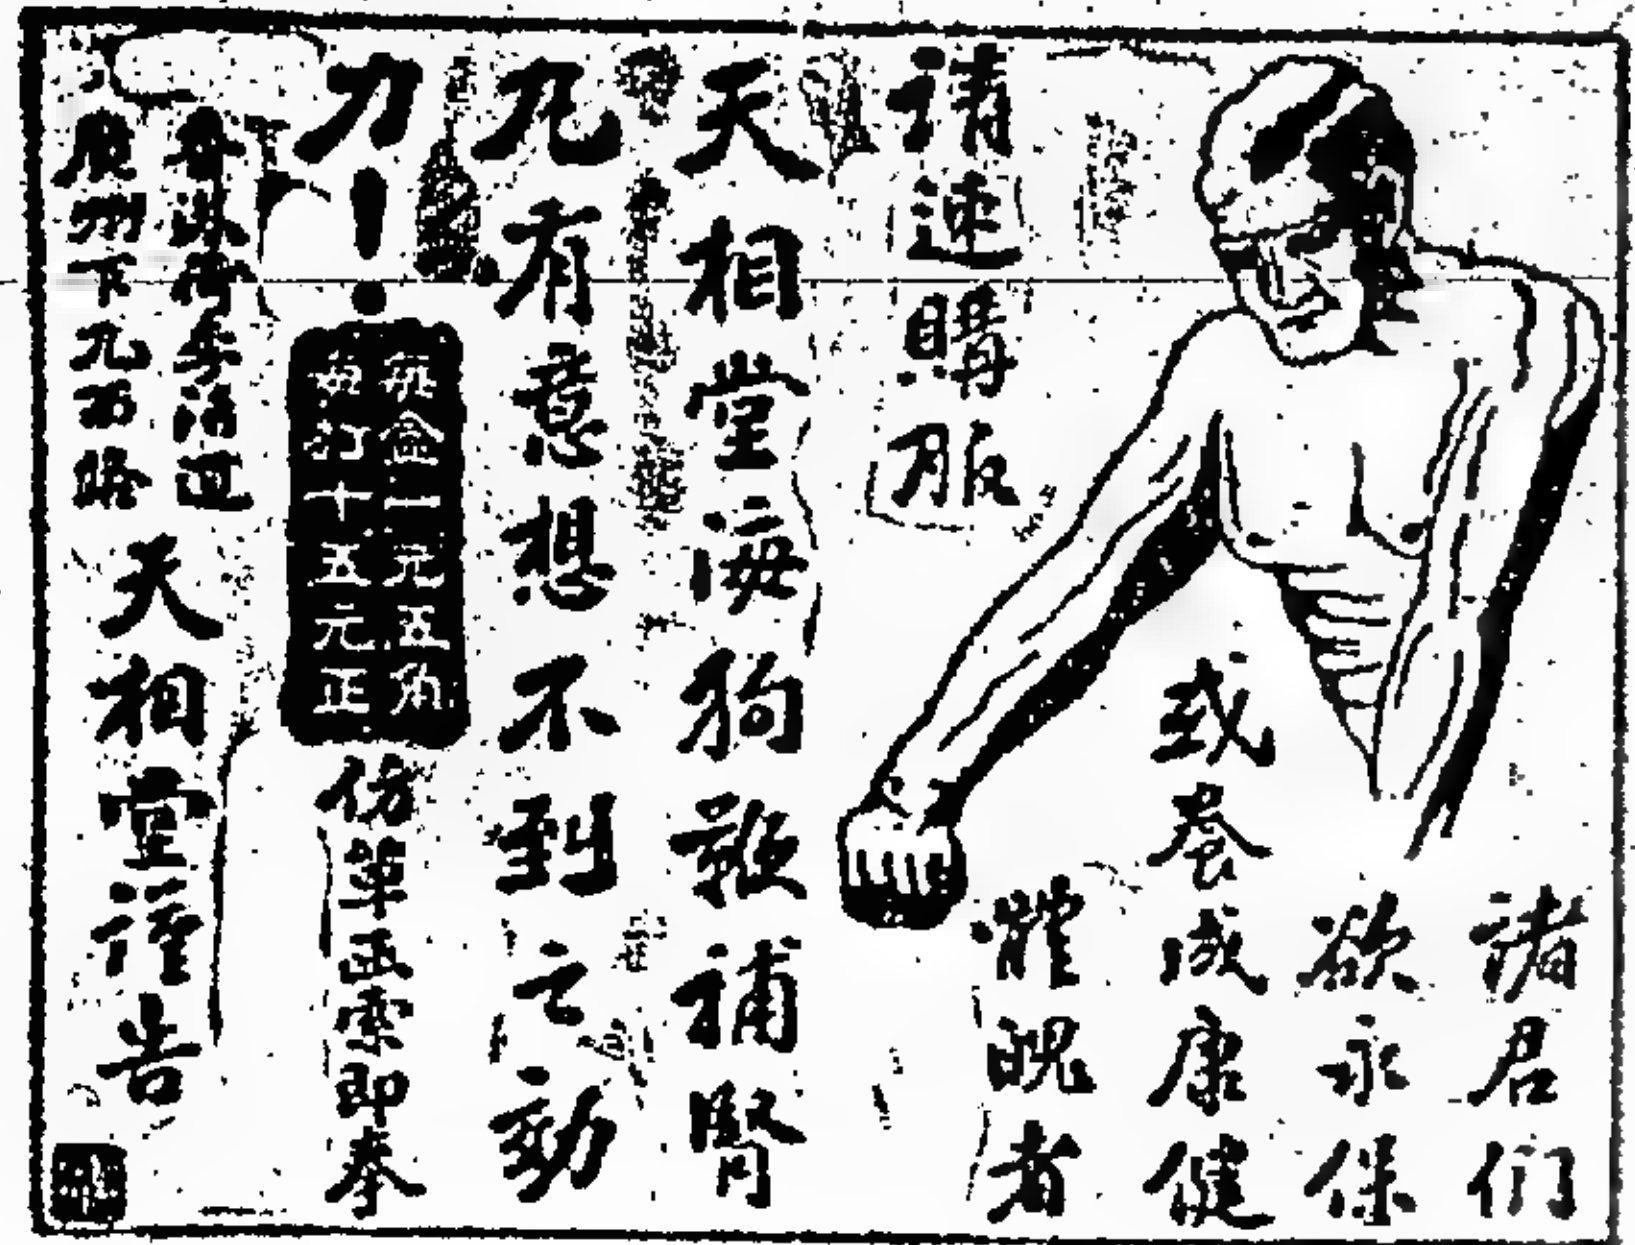 諸君们
欲永保
或養成康健
體魄者
請速購服
天相堂海狗鞭補腎
丸有意想不到之功
力！
每盒一元五角
每打十五元正
仿單函索即奉
香港
廣州下九西路
天相堂謹告